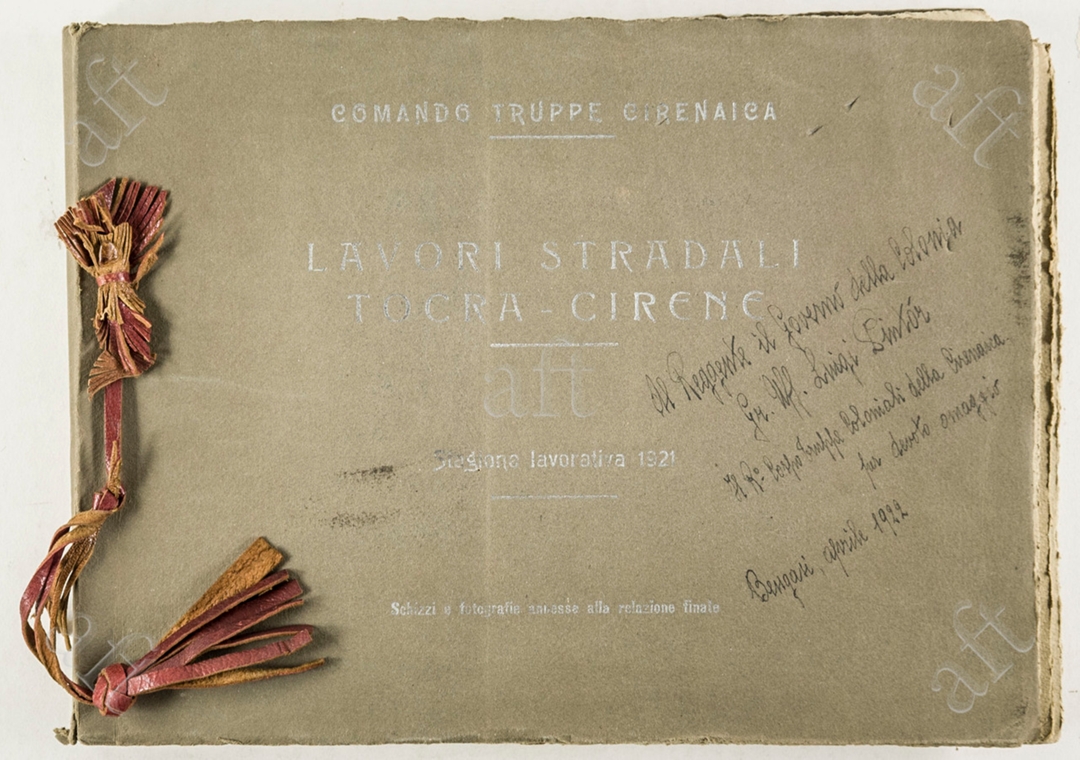 COMANDO TRUPPE CIRENAICA
LAVORI STRADALI
TOCRA - CIRENE
Stagione lavorativa 1921
Schizzi e fotografie annesse alla relazione finale
Al Reggente il Governo della Colonia
Gr. Uff. Luigi Pintór
Il R° Corpo Truppe Coloniali della Cirenaica
per devoto omaggio
Bengasi, aprile 1922
aft
aft
aft
aft
aft